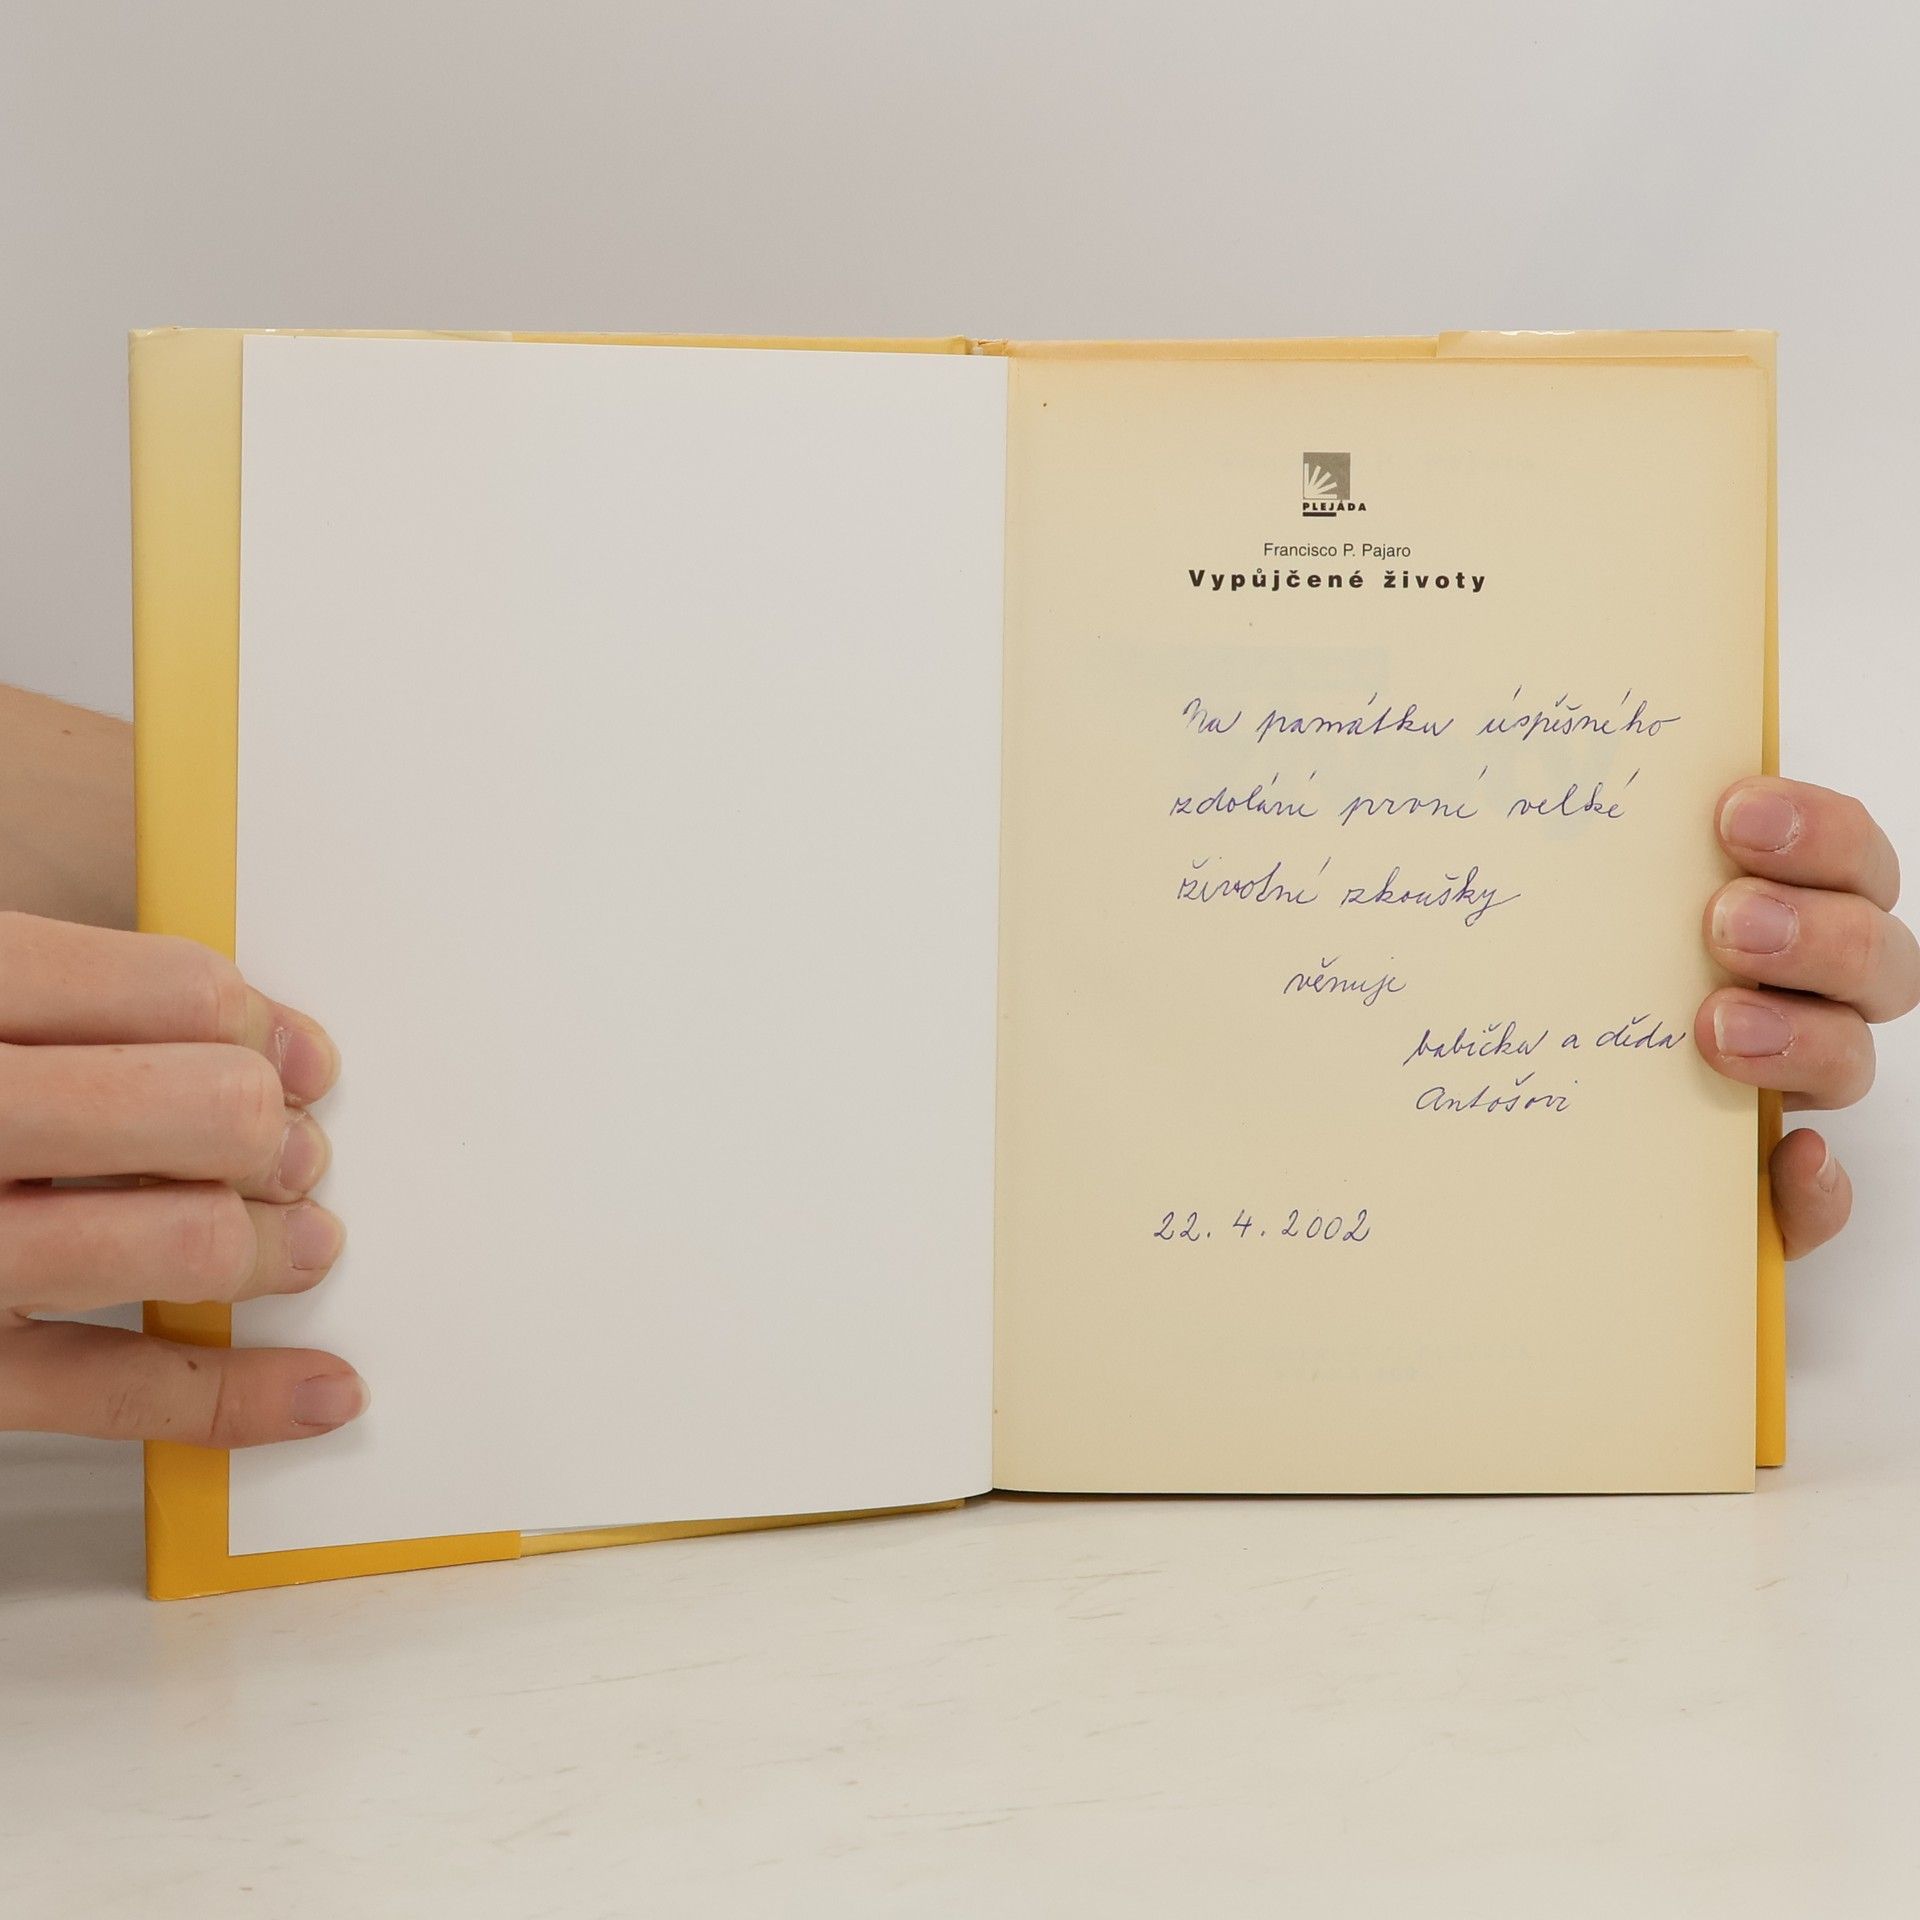 PLEJÁDA
Francisco P. Pajaro
Vypůjčené životy
Na památku úspěšného
zdolání první velké
životní zkoušky
věnuje
babička a děda
Antošovi
22. 4. 2002